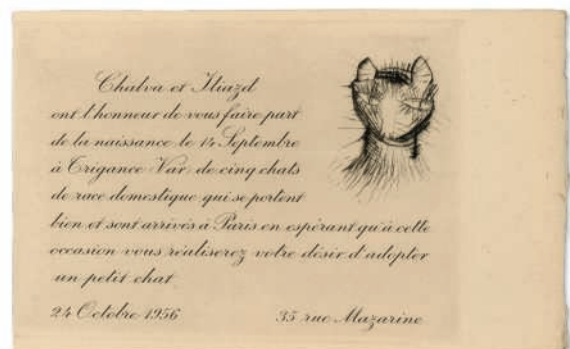 Chalva et Iliazd
ont l'honneur de vous faire part
de la naissance le 14 Septembre
à Trigance Var, de cinq chats
de race domestique qui se portent
bien et sont arrivés à Paris en espérant qu'à cette
occasion vous réaliserez votre désir d'adopter
un petit chat
24 Octobre 1956 35 rue Mazarine